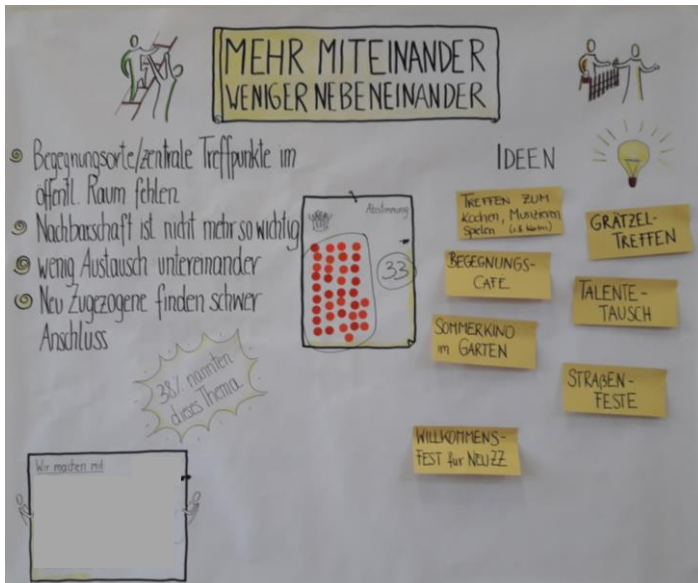 MEHR MITEINANDER
WENIGER NEBENEINANDER
Begegnungsorte/zentrale Treffpunkte im
öffentl. Raum fehlen
Nachbarschaft ist nicht mehr so wichtig
wenig Austausch untereinander
Neu Zugezogene finden schwer
Anschluss
38% nannten
dieses Thema
Wir machen mit
Abstimmung
33
IDEEN
TREFFEN ZUM
Kochen, Musizieren
Spielen
BEGEGNUNGS-
CAFÉ
SOMMERKINO
im GARTEN
WILLKOMMENS-
FEST für NEUZZ
GRÄTZEL-
TREFFEN
TALENTE-
TAUSCH
STRAßEN-
FESTE